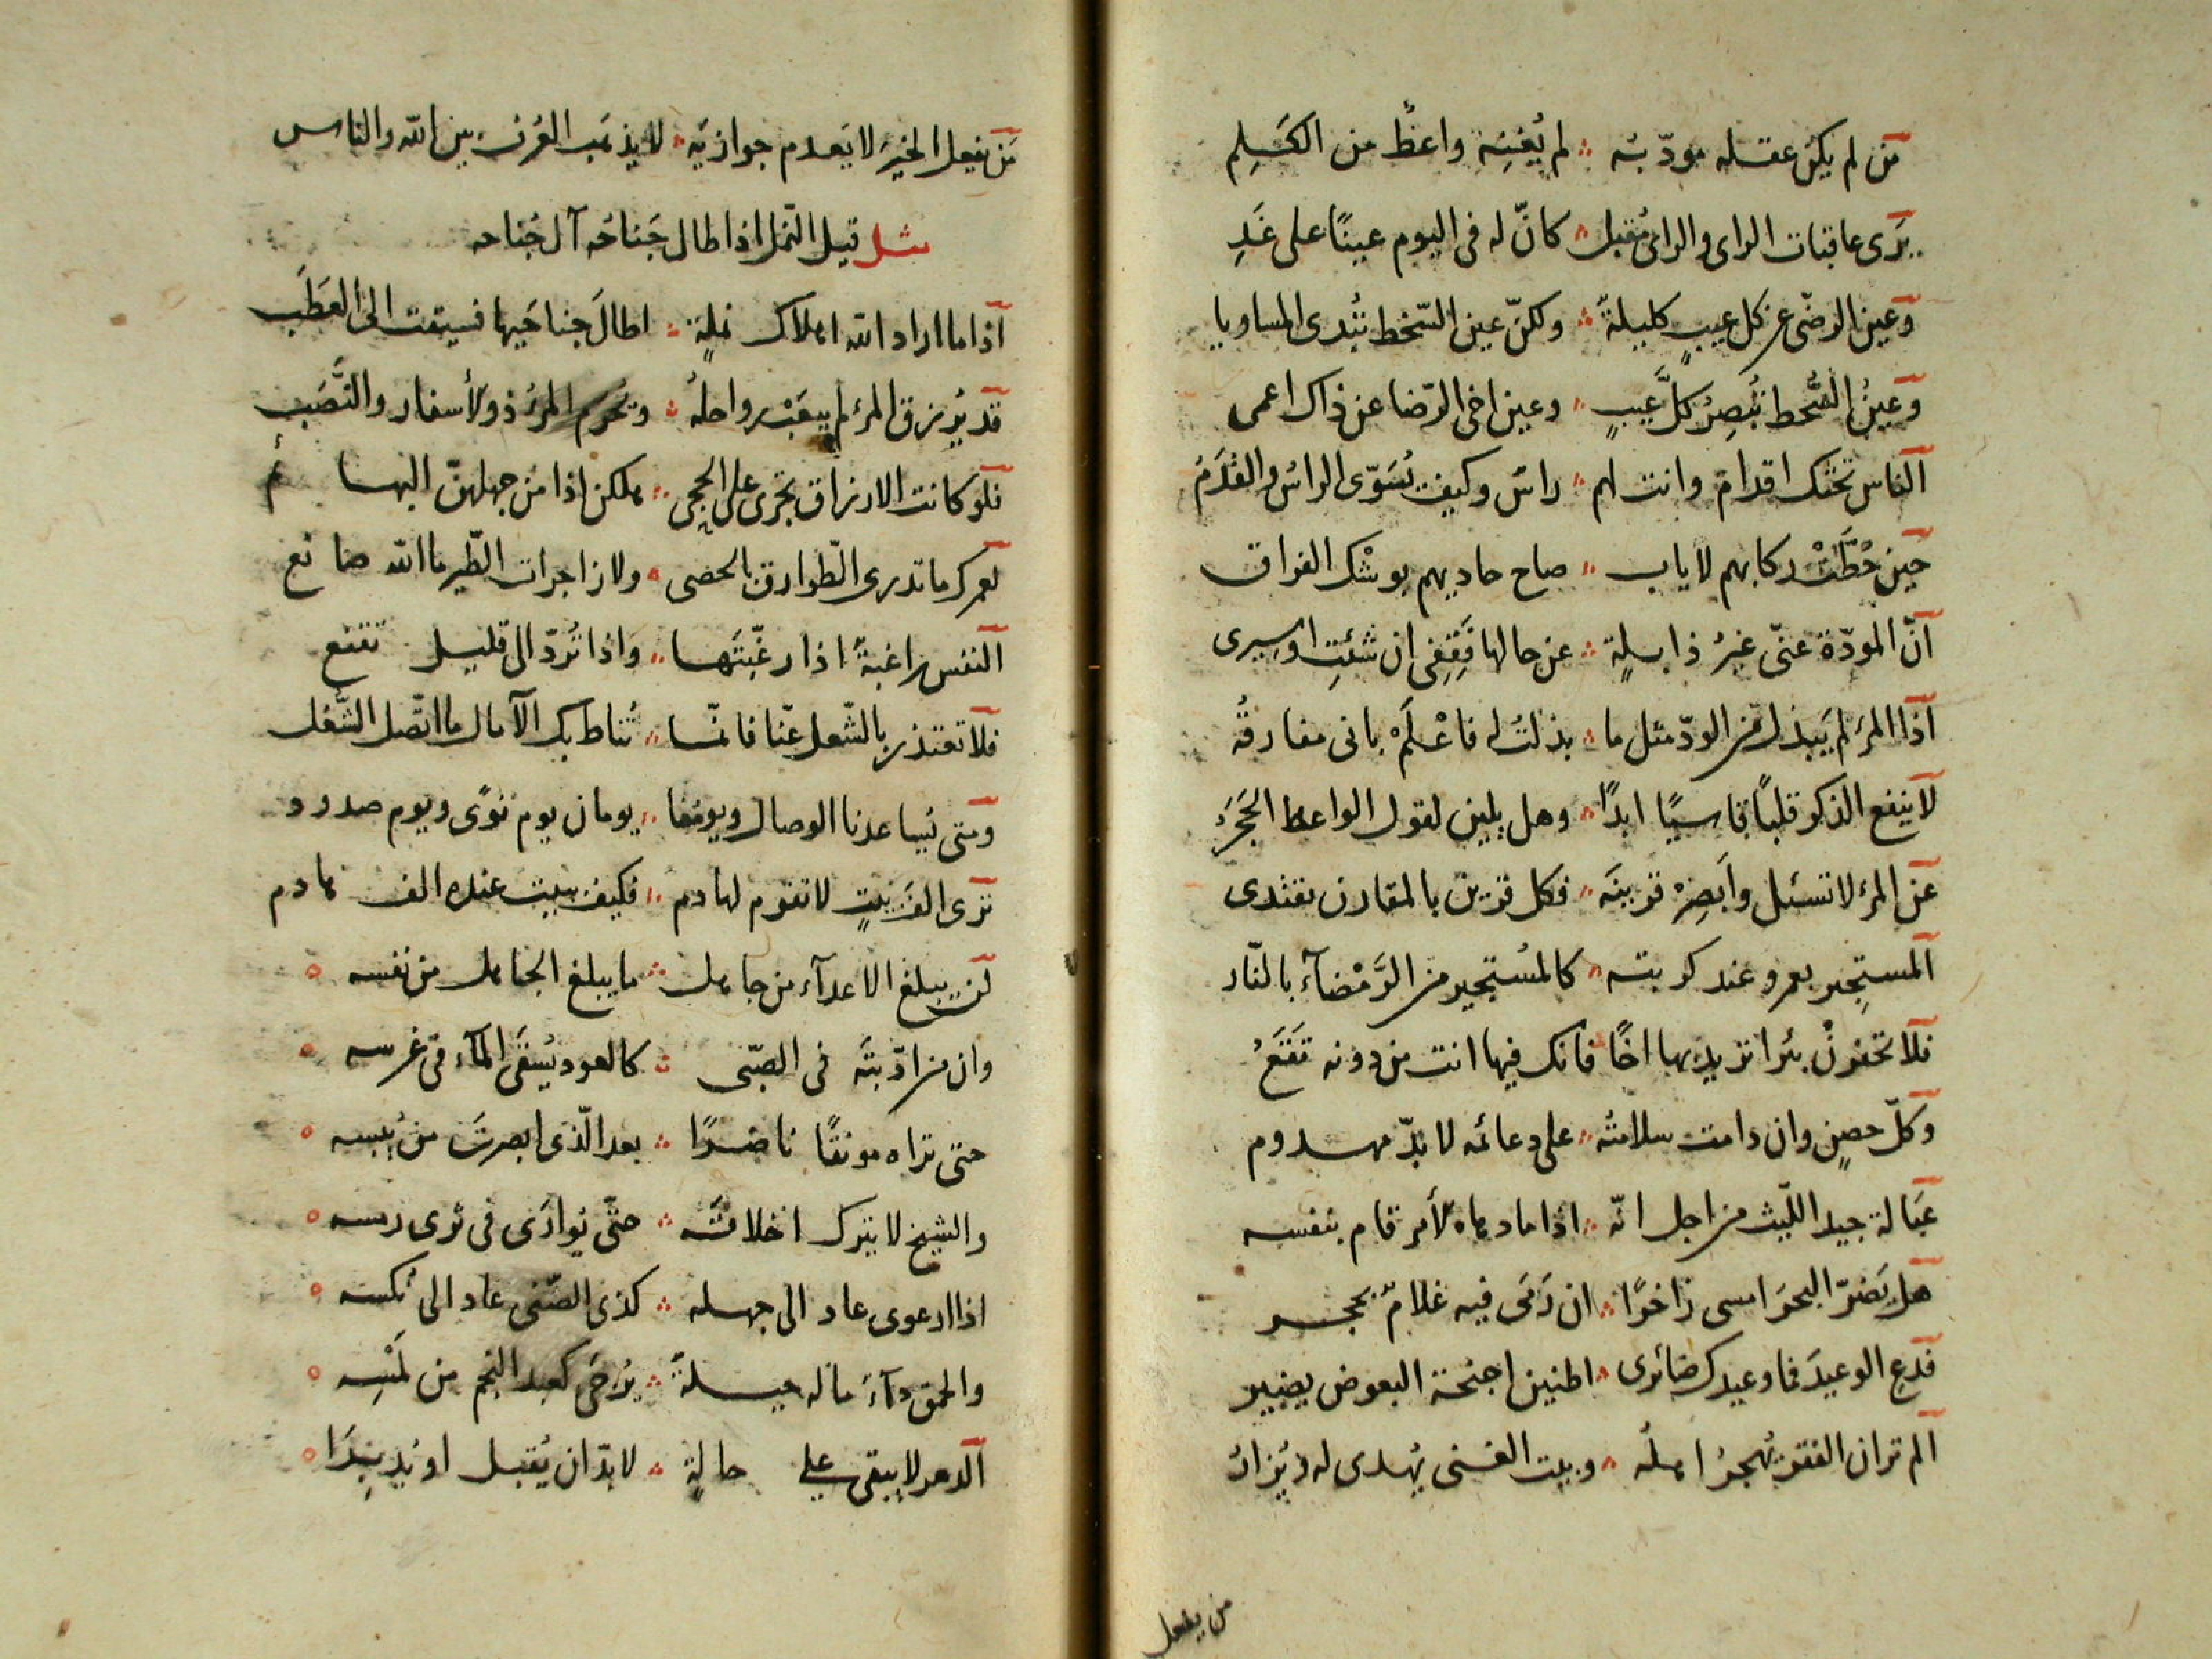 من لم يكن عقله مودّبه ∴ لم يُغنِه واعظٌ من الكَلِمِ
يَرَى عاقبات الراى والراى مُقبل ∴ كانّ له فى اليوم عينًا على غَدِ
وعين الرضى عن كل عيبٍ كليلةٌ ∴ ولكنّ عين السّخط تُبدى المساويا
وعينُ السُّخط تُبصِرُ كلَّ عَيبٍ ∴ وعين اخى الرّضا عن ذاك اعمى
الناس تحتك اقدامٌ وانت لهم ∴ راسٌ وكيف يُسَوّى الراسُ والقَدَمُ
حين حُطَّتْ ركابهم لاياب ∴ صاح حاديهم بوشْك الفراق
انّ المودّة عنّى غيرُ ذابلةٍ ∴ عن حالها فَقِفِى ان شئتِ اوسِيرى
اذا المرُ لم يَبذل من الودّ مثل ما ∴ بذلتُ له فاعْلَمْ بانى مفارقُه
لاينفع الذكر قلبًا قاسيًا ابدًا ∴ وهل يلين لقول الواعظ الحَجَرُ
عن المرء لا تسئل وابصِرْ قرينَه ∴ فكل قرين بالمقارن يقتدى
المستجير بعمرو عند كربته ∴ كالمُستجير من الرَّمْضآء بالنّار
فلا تحفرنْ بئرا تريد بها اخًا فانك فيها انت من دونه تَقَعُ
وكلّ حصنٍ وان دامت سلامتُه ∴ على دعائمه لا بدّ مهدوم
عَبَالة جيد اللّيث من اجل انّه ∴ اذا ما دهاه لأمر قام بنفسه
هل يَضرّ البحرَ امسى زاخرًا ∴ ان رَمَى فيه غلامٌ بحجر
فدَع الوعيدَ فما وعيدك ضائرى ∴ اطنين اجنحة البعوض يضير
الم تر ان الفقر يُهجرُ اهلُه ∴ وبيت الغنى يُهدى له ويُزارُ
من يفعل
مَن يفعل الخيرَ لا يَعدم جوازيَه ∴ لا يذهَب العُرف بين الله والناس
مثل قيل النّمل اذا طال جَناحُه آل جُناحه
اذا ما اراد الله اهلاك نملةٍ ∴ اطالَ جناحَيها فسيقت الى العَطَبِ
قد يُرزق المرءُ لم يتعَبْ رواحلُه ∴ ويُحرم المرءُ ذو الأسفار والتَّعَب
فلو كانت الارزاق تجرى على الحجى ∴ هلكن اذا من جهلهنّ البهائم
لعمرك ما تدرى الطّوارق بالحصى ∴ ولا زاجرات الطّير ما الله صانع
النفس راغبةٌ اذا رغّبتَها ∴ واذا تُردّ الى قليل تقنع
فلا تعتذر بالشّغل عنّا فانّما ∴ تُناط بك الآمال ما اتّصل الشّغل
ومتى يُساعدنا الوصال ويومنا ∴ يومان يوم نوًى ويوم صدود
ترى الف بيتٍ لا تقوم لهادم ∴ فكيف ببيت عنده الف هادم
لن يبلغ الاعدآء من جاهل ∴ ما يبلغ الجاهل من نفسه
وان من ادّبتَه فى الصّبى ∴ كالعود يُسقَى المآء فى غرسه
حتى تراه مونقًا ناضرًا ∴ بعد الّذى ابصرتَ من يُبسه
والشيخ لا يترك اخلاقَه ∴ حتّى يُوارَى فى ثرى رمسه
اذا ارعوى عاد الى جهله ∴ كذى الضّنى عاد الى نُكسه
والحمق دآءٌ ماله حيلةٌ ∴ تُرجَى كبعد النجم من لمَسِه
الدهر لا يبقى على حالةٍ ∴ لا بدّ ان يُقبل او يُدبِرَا